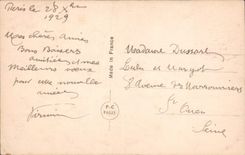 Paris le 28 Xbre
1929
Mes chères Amies
Bons Baisers
Amitiés et mes
Meilleurs voeux
pour cette nouvelle
année
Made in France
P-C
PARIS
Madame Dussart
Lulu et Margot
Avenue des
St Ouen
Seine